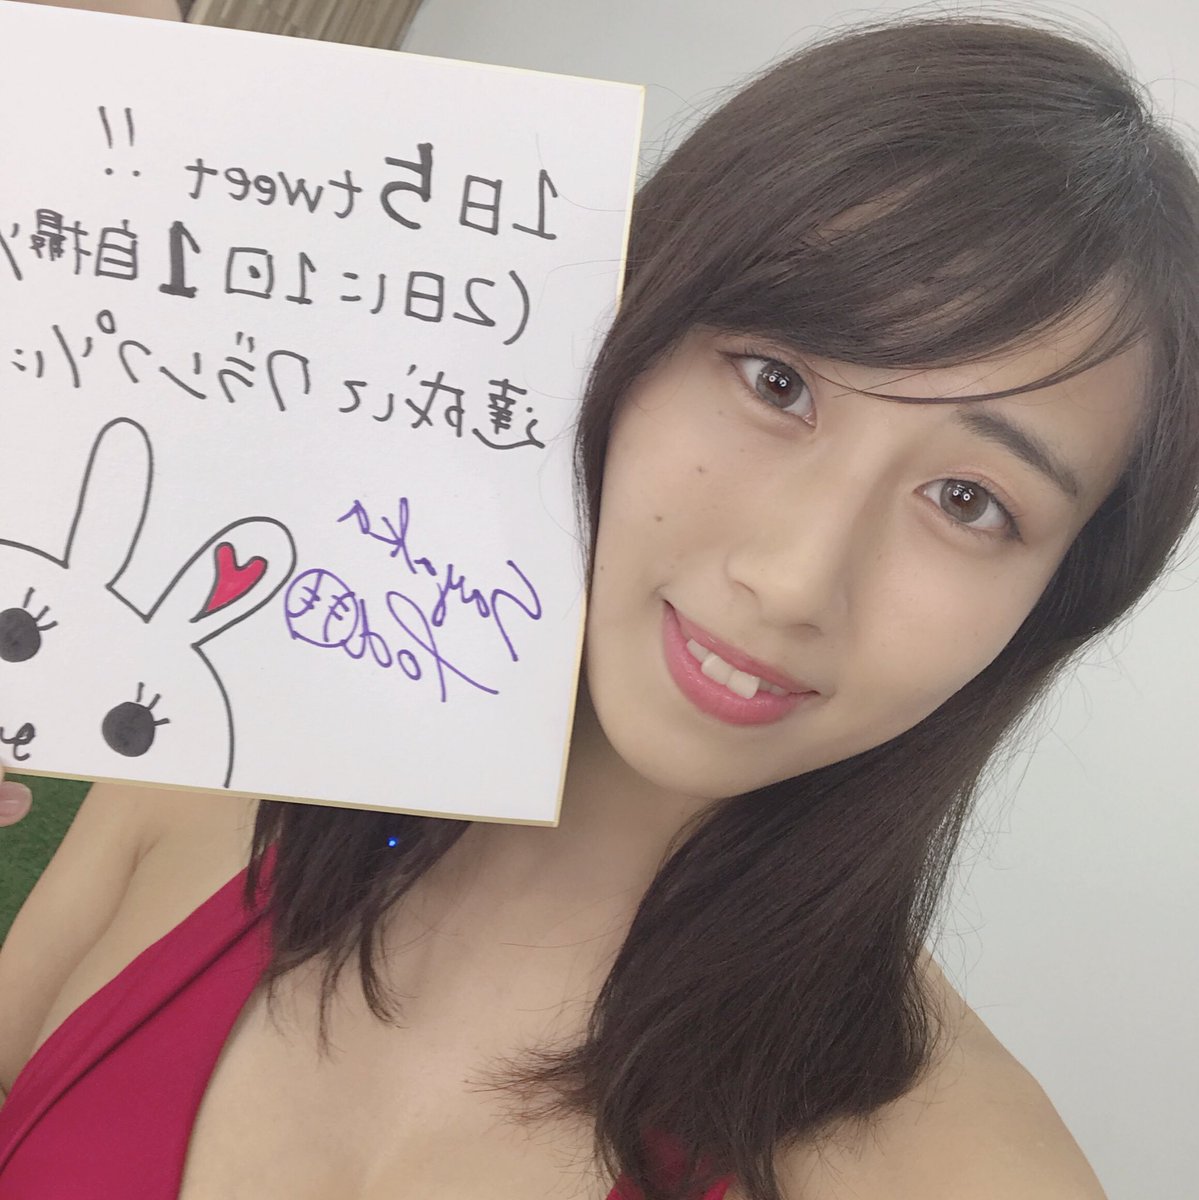 1日5tweet !!
(2日に1回1自撮り
達成してグランプリに
Sayaka
Toda